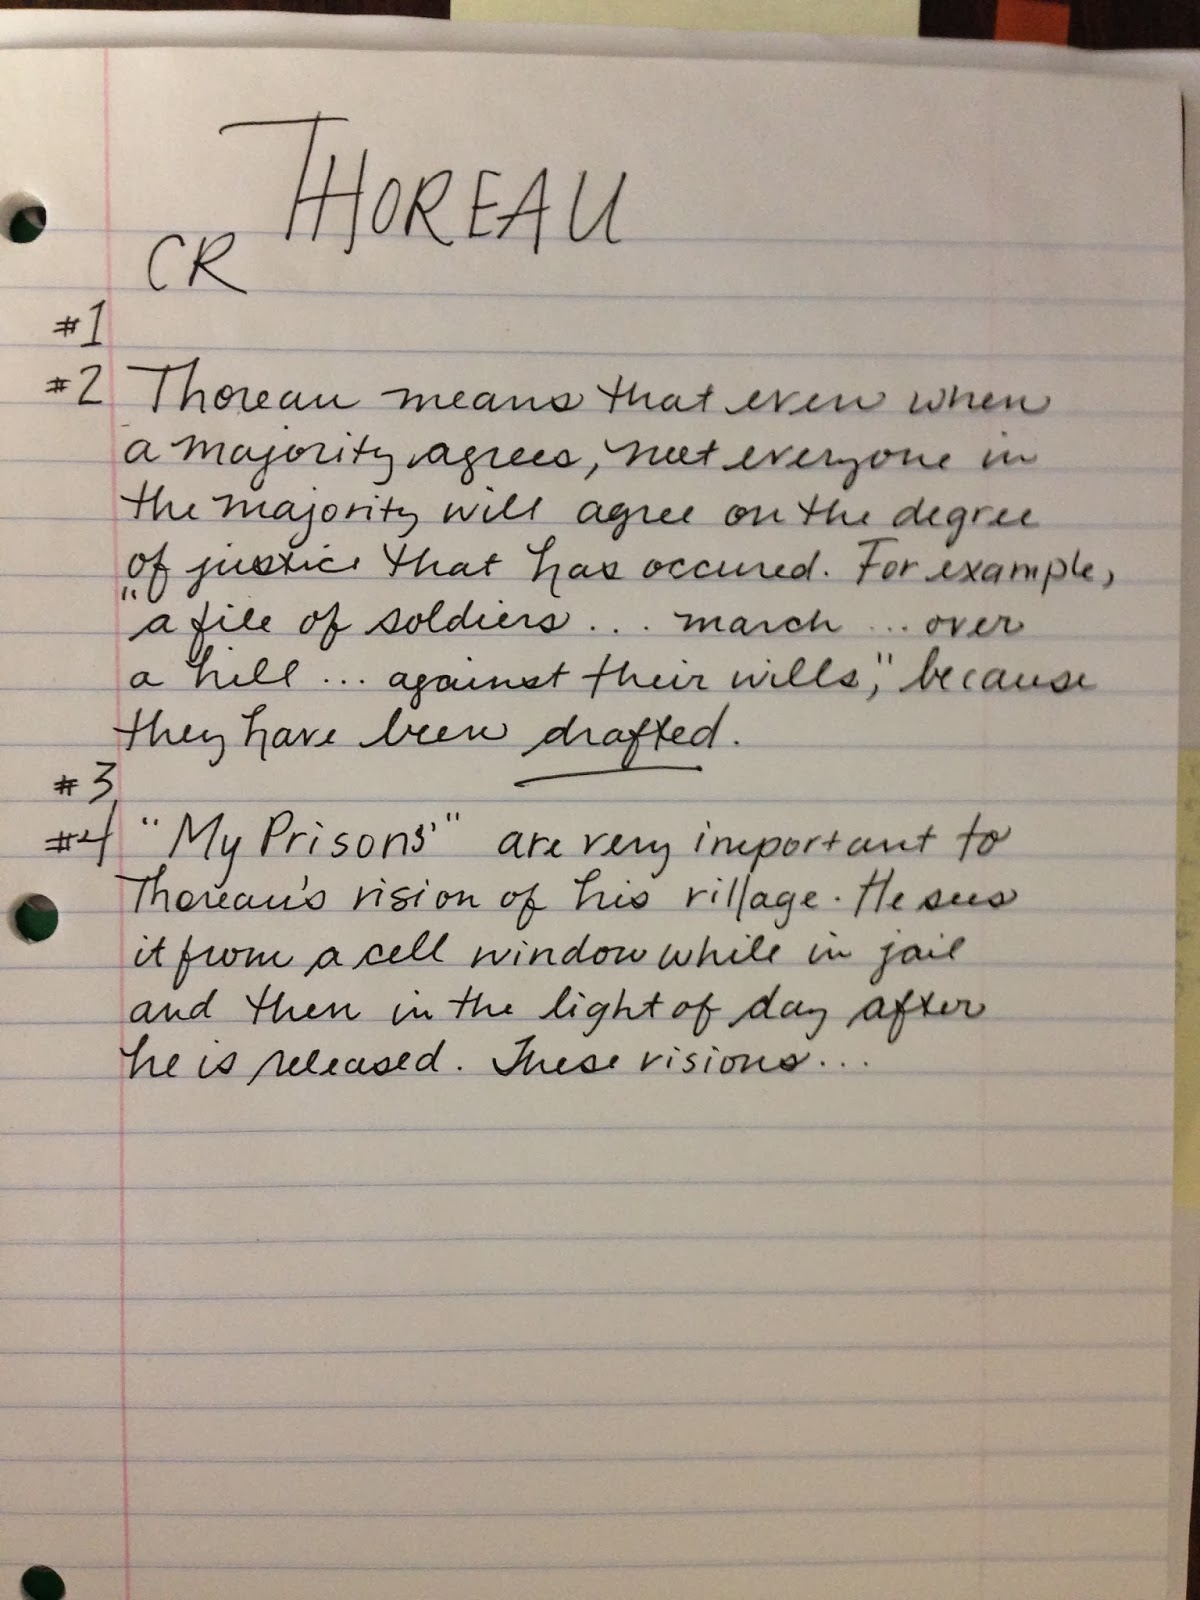 THOREAU
CR
#1
#2 Thoreau means that even when
a majority agrees, not everyone in
the majority will agree on the degree
of justice that has occured. For example,
"a file of soldiers... march ... over
a hill ... against their wills," because
they have been drafted.
#3
#4 "My Prisons" are very important to
Thoreau's vision of his village. He sees
it from a cell window while in jail
and then in the light of day after
he is released. These visions...